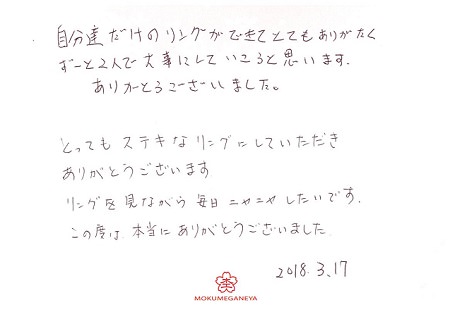 自分達だけのリングができてとてもありがたく
ずーと2人で大事にしていこうと思います.
ありがとうございました。
とってもステキなリングにしていただき
ありがとうございます
リングを見ながら毎日ニヤニヤしたいです.
この度は本当にありがとうございました
2018.3.17
MOKUMEGANEYA